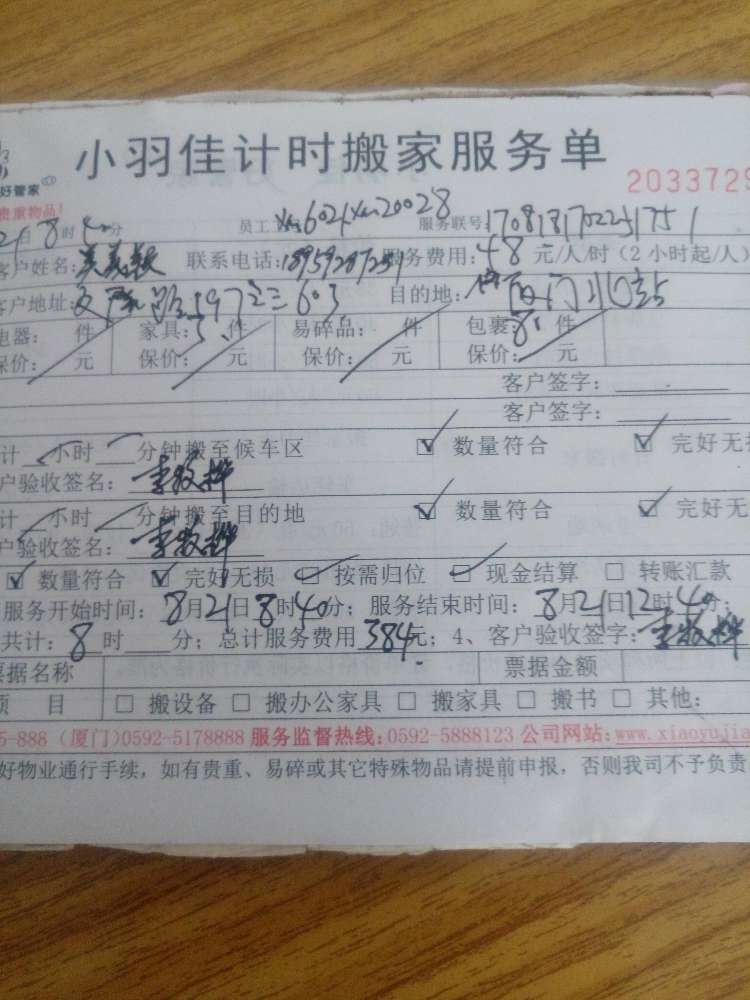 小羽佳计时搬家服务单
好管家
2033729
贵重物品!
21日8时40分 员工 服务联号:1708181702251751
客户姓名: 联系电话: 服务费用:48元/人/时(2小时起/人)
客户地址: 597 603 目的地: 西门北站
电器: 件 家具:5件 易碎品: 件 包裹:8件
保价: 元 保价: 元 保价: 元 保价: 元
客户签字:
客户签字:
计 小时 分钟搬至候车区 ☑ 数量符合 ☑ 完好无损
户验收签名:
计 小时 分钟搬至目的地 ☑ 数量符合 ☑ 完好无
户验收签名:
☑ 数量符合 ☑ 完好无损 ☑ 按需归位 ☑ 现金结算 □ 转账汇款
服务开始时间:8月21日8时40分;服务结束时间:8月21日12时40分;
共计:8时 分;总计服务费用384元;4、客户验收签字:
票据名称 票据金额
项 目 □ 搬设备 □ 搬办公家具 □ 搬家具 □ 搬书 □ 其他:
5-888 (厦门)0592-5178888 服务监督热线:0592-5888123 公司网站:www.xiaoyujia
好物业通行手续,如有贵重、易碎或其它特殊物品请提前申报,否则我司不予负责